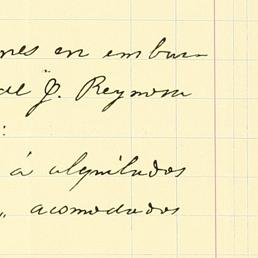 nes en embar
de J. Reynosa
:
á alquilados
„ acomodados